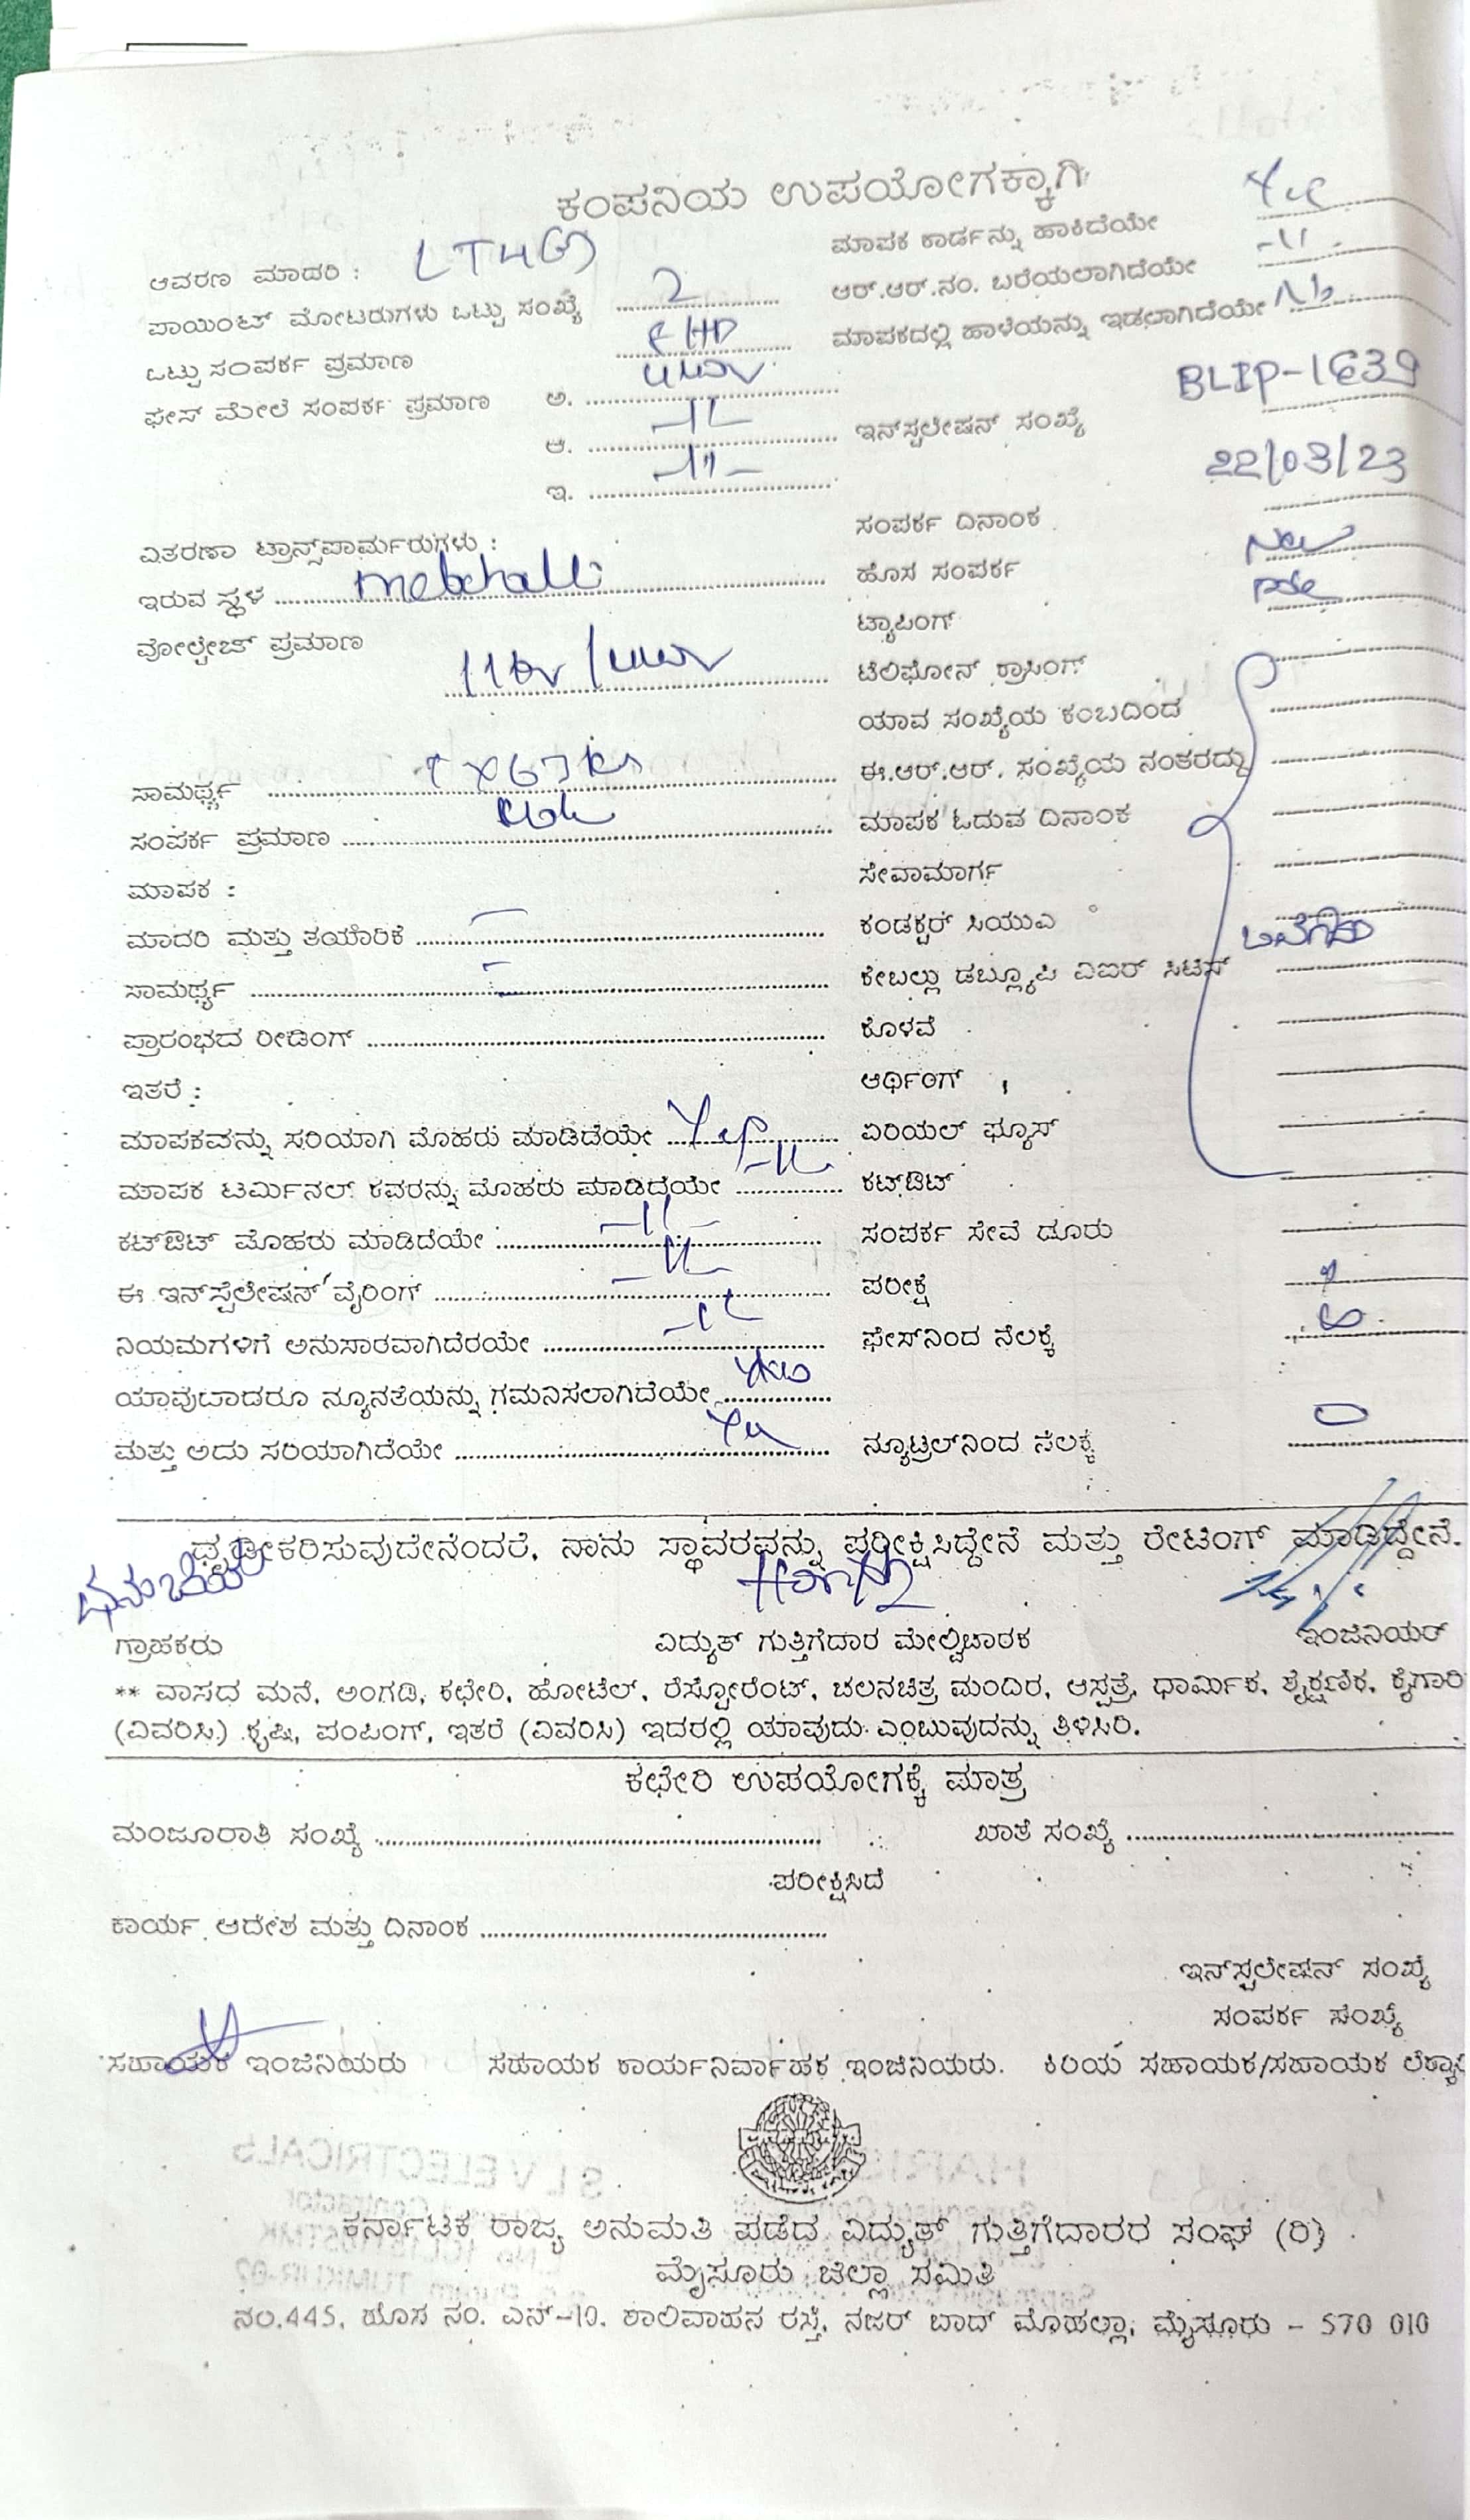 ಕಂಪನಿಯ ಉಪಯೋಗಕ್ಕಾಗಿ
ಆವರಣ ಮಾದರಿ : LT4(G)
ಪಾಯಿಂಟ್ ಮೋಟರುಗಳು ಒಟ್ಟು ಸಂಖ್ಯೆ 2
ಒಟ್ಟು ಸಂಪರ್ಕ ಪ್ರಮಾಣ
ಫೇಸ್ ಮೇಲೆ ಸಂಪರ್ಕ ಪ್ರಮಾಣ ಅ.
ಆ.
ಇ. -11-
ವಿತರಣಾ ಟ್ರಾನ್ಸ್‌ಪಾರ್ಮರುಗಳು :
ಇರುವ ಸ್ಥಳ
ವೋಲ್ಟೇಜ್ ಪ್ರಮಾಣ
ಸಾಮರ್ಥ್ಯ
ಸಂಪರ್ಕ ಪ್ರಮಾಣ
ಮಾಪಕ :
ಮಾದರಿ ಮತ್ತು ತಯಾರಿಕೆ
ಸಾಮರ್ಥ್ಯ
ಪ್ರಾರಂಭದ ರೀಡಿಂಗ್
ಇತರೆ :
ಮಾಪಕವನ್ನು ಸರಿಯಾಗಿ ಮೊಹರು ಮಾಡಿದೆಯೇ Yes
ಮಾಪಕ ಟರ್ಮಿನಲ್ ಕವರನ್ನು ಮೊಹರು ಮಾಡಿದೆಯೇ -11-
ಕಟ್‌ಔಟ್ ಮೊಹರು ಮಾಡಿದೆಯೇ -11-
ಈ ಇನ್‌ಸ್ಟೆಲೇಷನ್ ವೈರಿಂಗ್ -11-
ನಿಯಮಗಳಿಗೆ ಅನುಸಾರವಾಗಿದೆರಯೇ -11-
ಯಾವುದಾದರೂ ನ್ಯೂನತೆಯನ್ನು ಗಮನಿಸಲಾಗಿದೆಯೇ
ಮತ್ತು ಅದು ಸರಿಯಾಗಿದೆಯೇ Yes
ಮಾಪಕ ಕಾರ್ಡನ್ನು ಹಾಕಿದೆಯೇ Yes
ಆರ್.ಆರ್.ನಂ. ಬರೆಯಲಾಗಿದೆಯೇ -11-
ಮಾಪಕದಲ್ಲಿ ಹಾಳೆಯನ್ನು ಇಡಲಾಗಿದೆಯೇ No
ಇನ್‌ಸ್ಟಲೇಷನ್ ಸಂಖ್ಯೆ BLIP-1639
ಸಂಪರ್ಕ ದಿನಾಂಕ 22/03/23
ಹೊಸ ಸಂಪರ್ಕ New
ಟ್ಯಾಪಿಂಗ್
ಟೆಲಿಫೋನ್ ಕ್ರಾಸಿಂಗ್
ಯಾವ ಸಂಖ್ಯೆಯ ಕಂಬದಿಂದ
ಈ.ಆರ್.ಆರ್. ಸಂಖ್ಯೆಯ ನಂತರದ್ದು
ಮಾಪಕ ಓದುವ ದಿನಾಂಕ
ಸೇವಾಮಾರ್ಗ
ಕಂಡಕ್ಟರ್ ಸಿಯುಎ
ಕೇಬಲ್ಲು ಡಬ್ಲ್ಯೂಪಿ ಎಐರ್ ಸಿಟಿಸ್
ಕೊಳವೆ
ಆರ್ಥಿಂಗ್
ಏರಿಯಲ್ ಫ್ಯೂಸ್
ಕಟ್‌ಔಟ್
ಸಂಪರ್ಕ ಸೇವೆ ಡೂರು
ಪರೀಕ್ಷೆ
ಫೇಸ್‌ನಿಂದ ನೆಲಕ್ಕೆ
ನ್ಯೂಟ್ರಲ್‌ನಿಂದ ನೆಲಕ್ಕೆ 0
ಧೃಡೀಕರಿಸುವುದೇನೆಂದರೆ, ನಾನು ಸ್ಥಾವರವನ್ನು ಪರೀಕ್ಷಿಸಿದ್ದೇನೆ ಮತ್ತು ರೇಟಿಂಗ್ ಮಾಡಿದ್ದೇನೆ.
ಗ್ರಾಹಕರು ವಿದ್ಯುತ್ ಗುತ್ತಿಗೆದಾರ ಮೇಲ್ವಿಚಾರಕ ಇಂಜಿನಿಯರ್
** ವಾಸದ ಮನೆ, ಅಂಗಡಿ, ಕಛೇರಿ, ಹೋಟೆಲ್, ರೆಸ್ಟೋರೆಂಟ್, ಚಲನಚಿತ್ರ ಮಂದಿರ, ಆಸ್ಪತ್ರೆ, ಧಾರ್ಮಿಕ, ಶೈಕ್ಷಣಿಕ, ಕೈಗಾರಿ
(ವಿವರಿಸಿ) ಕೃಷಿ, ಪಂಪಿಂಗ್, ಇತರೆ (ವಿವರಿಸಿ) ಇದರಲ್ಲಿ ಯಾವುದು ಎಂಬುವುದನ್ನು ತಿಳಿಸಿರಿ.
ಕಛೇರಿ ಉಪಯೋಗಕ್ಕೆ ಮಾತ್ರ
ಮಂಜೂರಾತಿ ಸಂಖ್ಯೆ ಖಾತೆ ಸಂಖ್ಯೆ
ಪರೀಕ್ಷಿಸಿದೆ
ಕಾರ್ಯ ಆದೇಶ ಮತ್ತು ದಿನಾಂಕ
ಇನ್‌ಸ್ಟಲೇಷನ್ ಸಂಖ್ಯೆ
ಸಂಪರ್ಕ ಸಂಖ್ಯೆ
ಸಹಾಯಕ ಇಂಜಿನಿಯರು ಸಹಾಯಕ ಕಾರ್ಯನಿರ್ವಾಹಕ ಇಂಜಿನಿಯರು. ಕಿರಿಯ ಸಹಾಯಕ/ಸಹಾಯಕ
ಕರ್ನಾಟಕ ರಾಜ್ಯ ಅನುಮತಿ ಪಡೆದ ವಿದ್ಯುತ್ ಗುತ್ತಿಗೆದಾರರ ಸಂಘ (ರಿ)
ಮೈಸೂರು ಜಿಲ್ಲಾ ಸಮಿತಿ
ನಂ.445, ಹೊಸ ನಂ. ಎನ್-10, ಶಾಲಿವಾಹನ ರಸ್ತೆ, ನಜರ್ ಬಾದ್ ಮೊಹಲ್ಲಾ, ಮೈಸೂರು - 570 010